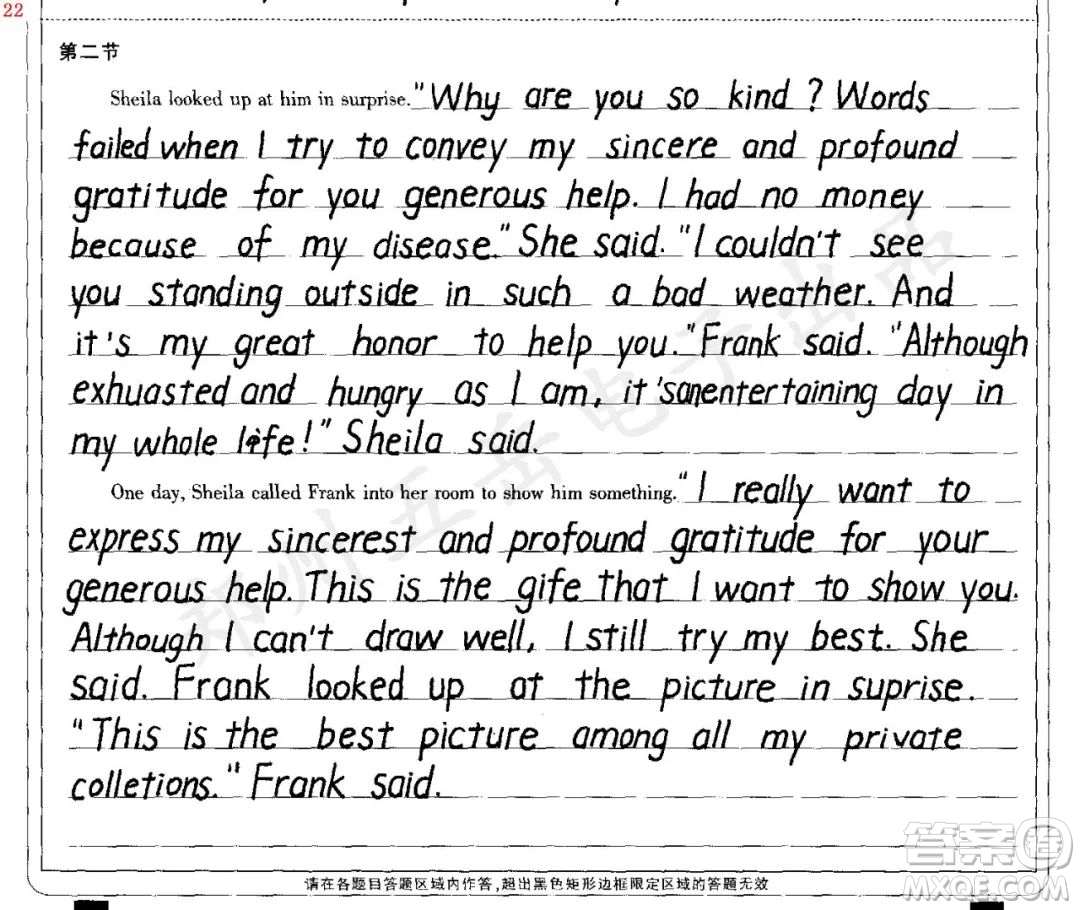 22
第二节
Sheila looked up at him in surprise. "Why are you so kind? Words
failed when I try to convey my sincere and profound
gratitude for you generous help. I had no money
because of my disease." She said. "I couldn't see
you standing outside in such a bad weather. And
it's my great honor to help you." Frank said. "Although
exhuasted and hungry as I am, it's an entertaining day in
my whole life!" Sheila said.
One day, Sheila called Frank into her room to show him something. "I really want to
express my sincerest and profound gratitude for your
generous help. This is the gife that I want to show you.
Although I can't draw well, I still try my best. She
said. Frank looked up at the picture in suprise.
"This is the best picture among all my private
colletions." Frank said.
请在各题目答题区域内作答,超出黑色矩形边框限定区域的答题无效
郑州五岳电子出品
答案圈
MXQE.COM